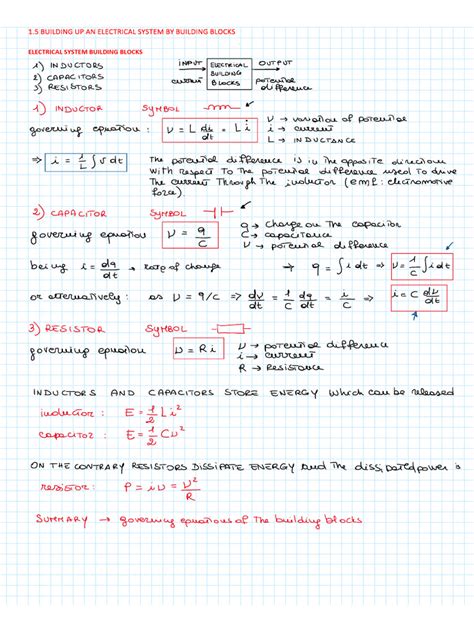 1.5 BUILDING UP AN ELECTRICAL SYSTEM BY BUILDING BLOCKS
ELECTRICAL SYSTEM BUILDING BLOCKS
1) INDUCTORS
2) CAPACITORS
3) RESISTORS
INPUT → ELECTRICAL BUILDING BLOCKS → OUTPUT
current potential difference
1) INDUCTOR SYMBOL
governing equation : v = L di/dt = L i̇
v → variation of potential
i → current
L → INDUCTANCE
⇒ i = 1/L ∫ v dt
The potential difference is in the opposite direction
with respect to the potential difference used to drive
the current through the inductor (emf: electromotive
force).
2) CAPACITOR SYMBOL
governing equation v = q/C
q → charge on the capacitor
C → capacitance
v → potential difference
being i = dq/dt → rate of change → q = ∫ i dt ⇒ v = 1/C ∫ i dt
or alternatively : as v = q/c ⇒ dv/dt = 1/C dq/dt = i/C ⇒ i = C dv/dt
3) RESISTOR SYMBOL
governing equation v = R i
v → potential difference
i → current
R → RESISTANCE
INDUCTORS AND CAPACITORS STORE ENERGY which can be released
inductor : E = 1/2 L i²
capacitor : E = 1/2 C v²
ON THE CONTRARY RESISTORS DISSIPATE ENERGY and the dissipated power is
resistor : P = i v = v²/R
SUMMARY → governing equations of the building blocks